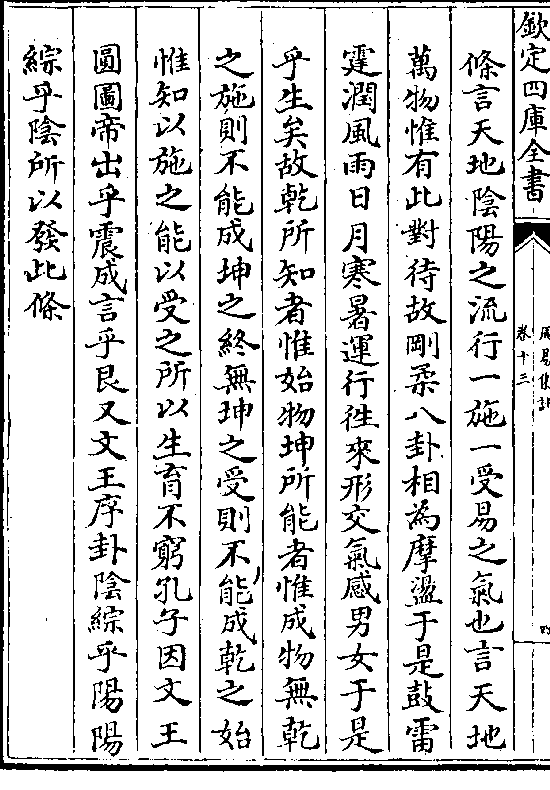 欽定四庫全書
卷十三
條言天地陰陽之流行一施一受易之氣也言天地
萬物惟有此對待故剛柔八卦相為摩盪于是鼓雷
霆潤風雨日月寒暑運行徃來形交氣感男女于是
乎生矣故乾所知者惟始物坤所能者惟成物無乾
之施則不能成坤之終無坤之受則不能成乾之始
惟知以施之能以受之所以生育不窮孔子因文王
圓圖帝出乎震成言乎艮又文王序卦陰綜乎陽陽
綜乎陰所以發此條